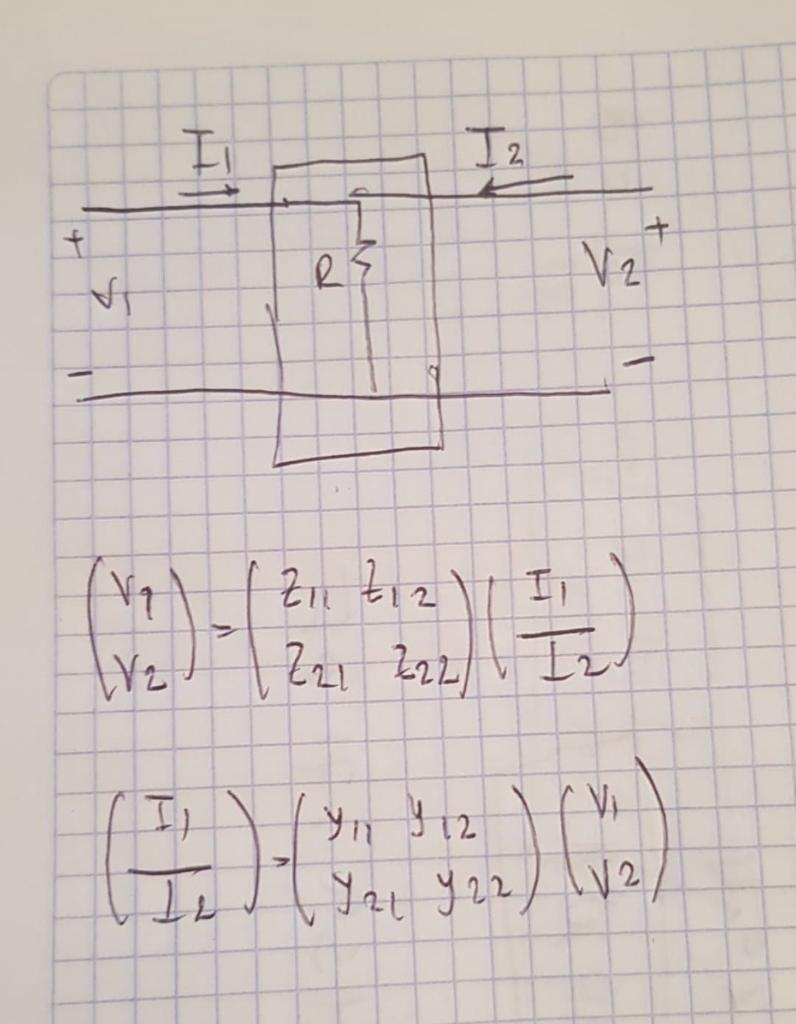 I1 I2
+ +
R V2
V1
- -
(V1 V2) = (Z11 Z12 Z21 Z22) (I1 I2)
(I1 I2) = (y11 y12 y21 y22) (V1 V2)